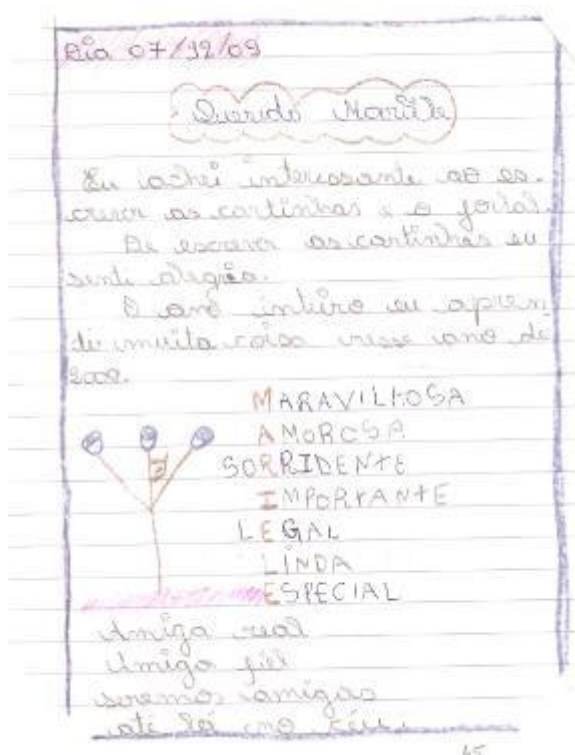 Dia 07/12/09
Querida Marille
Eu achei interessante ao es-
crever as cartinhas e o jornal.
De escrever as cartinhas eu
senti alegria.
O ano inteiro eu apren
di muita coisa nesse ano de
MARAVILHOSA
AMOROSA
SORRIDENTE
IMPORTANTE
LEGAL
LINDA
ESPECIAL
Amiga real
Amiga fiel
seremos amigas
até lá no céu.
45